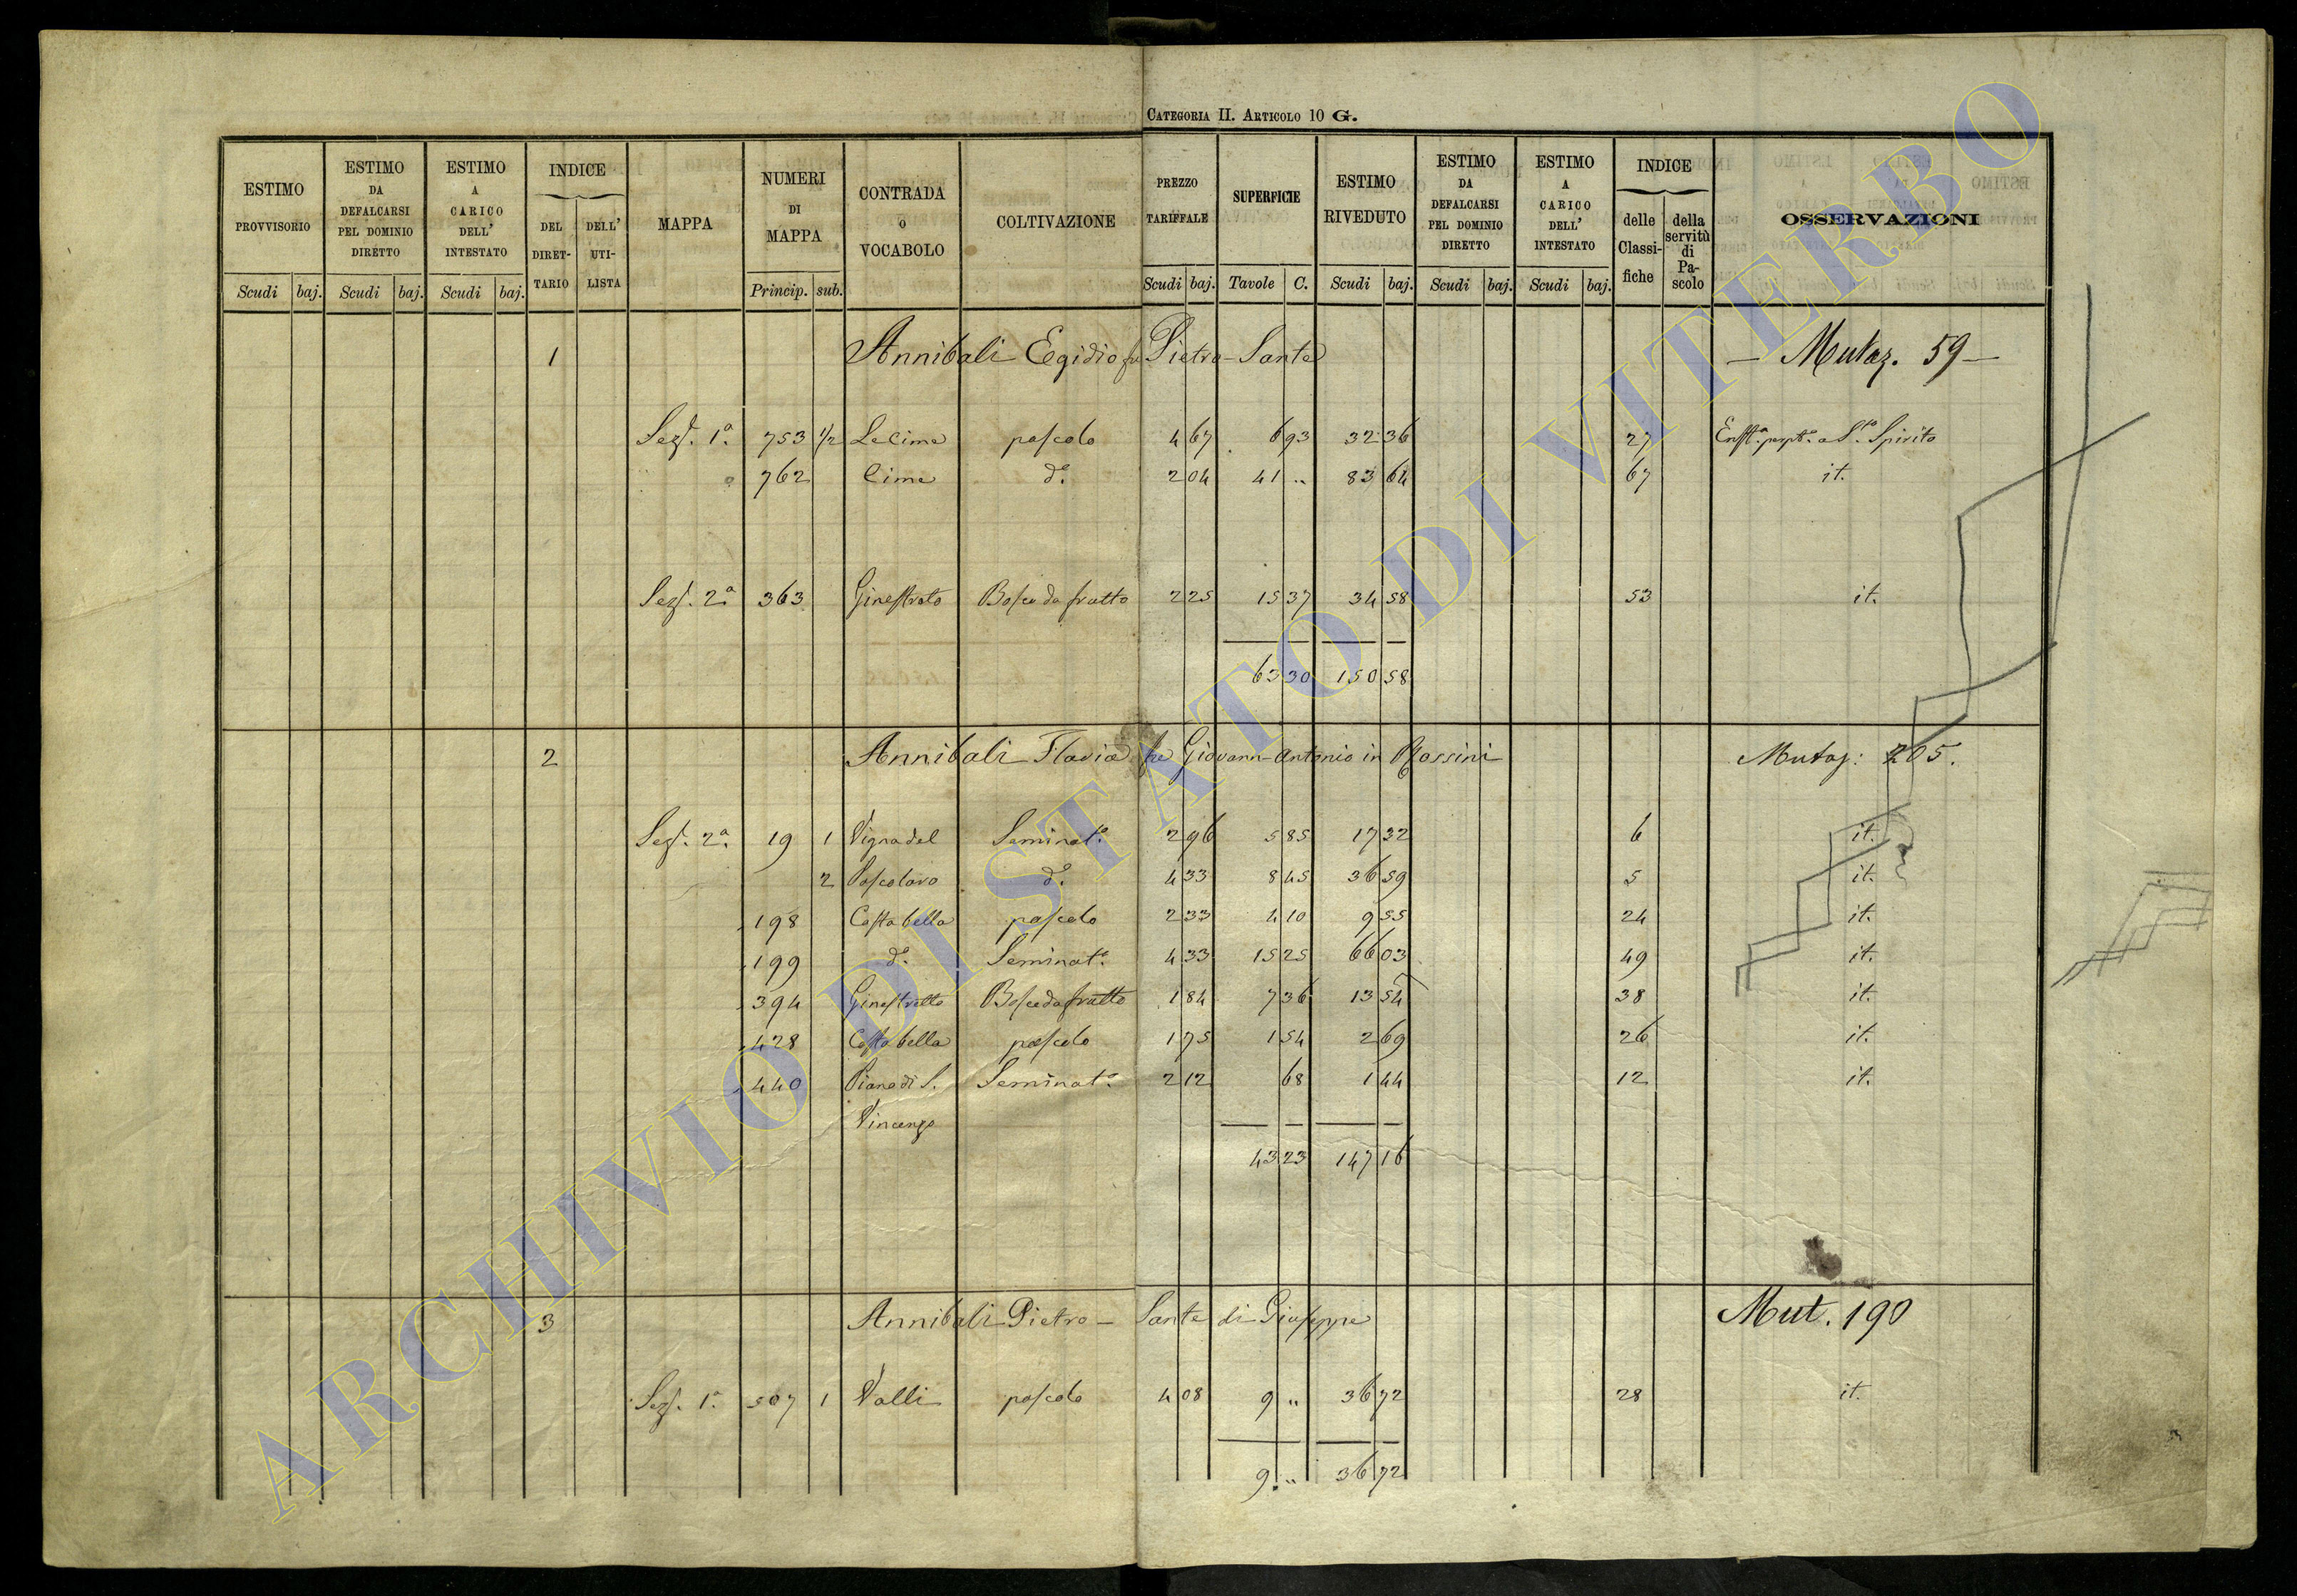 CATEGORIA II. ARTICOLO 10 G.
ESTIMO PROVVISORIO Scudi baj.
ESTIMO DA DEFALCARSI PEL DOMINIO DIRETTO Scudi baj.
ESTIMO A CARICO DELL' INTESTATO Scudi baj.
INDICE DEL DIRETTARIO DELL' UTILISTA
MAPPA
NUMERI DI MAPPA Princip. sub.
CONTRADA O VOCABOLO
COLTIVAZIONE
PREZZO TARIFFALE Scudi baj.
SUPERFICIE Tavole C.
ESTIMO RIVEDUTO Scudi baj.
ESTIMO DA DEFALCARSI PEL DOMINIO DIRETTO Scudi baj.
ESTIMO A CARICO DELL' INTESTATO Scudi baj.
INDICE delle Classifiche della servitù di Pascolo
OSSERVAZIONI
1 Annibali Egidio fu Pietro-Sante — Mutaz. 59 —
Sez. 1ª 753 1/2 Le Cime pascolo 4 67 6 93 32 36 27 S.to Spirito
762 Cime d.º 2 04 41 .. 83 64 67 it.
Sez. 2ª 363 Ginestreto Bosco da frutto 2 25 15 37 34 58 53 it.
63 30 150 58
2 Annibali Flavia fu Giovann-Antonio in Rossini Mutaz: 205.
Sez. 2ª 19 1 Vigna del Seminat.º 2 96 5 85 17 32 6 it.
2 Pascolaro d.º 4 33 8 45 36 59 5 it.
198 Costa bella pascolo 2 33 4 10 9 55 24 it.
199 d.º Seminat.º 4 33 15 25 66 03 49 it.
394 Ginestretto Bosco da frutto 1 84 7 36 13 54 38 it.
428 Costa bella pascolo 1 75 1 54 2 69 26 it.
440 Piano di S. Seminat.º 2 12 68 1 44 12 it.
Vincenzo
43 23 147 16
3 Annibali Pietro-Sante di Giuseppe Mut. 190
Sez. 1ª 507 1 Valli pascolo 4 08 9 .. 36 72 28 it.
9 .. 36 72
ARCHIVIO DI STATO DI VITERBO